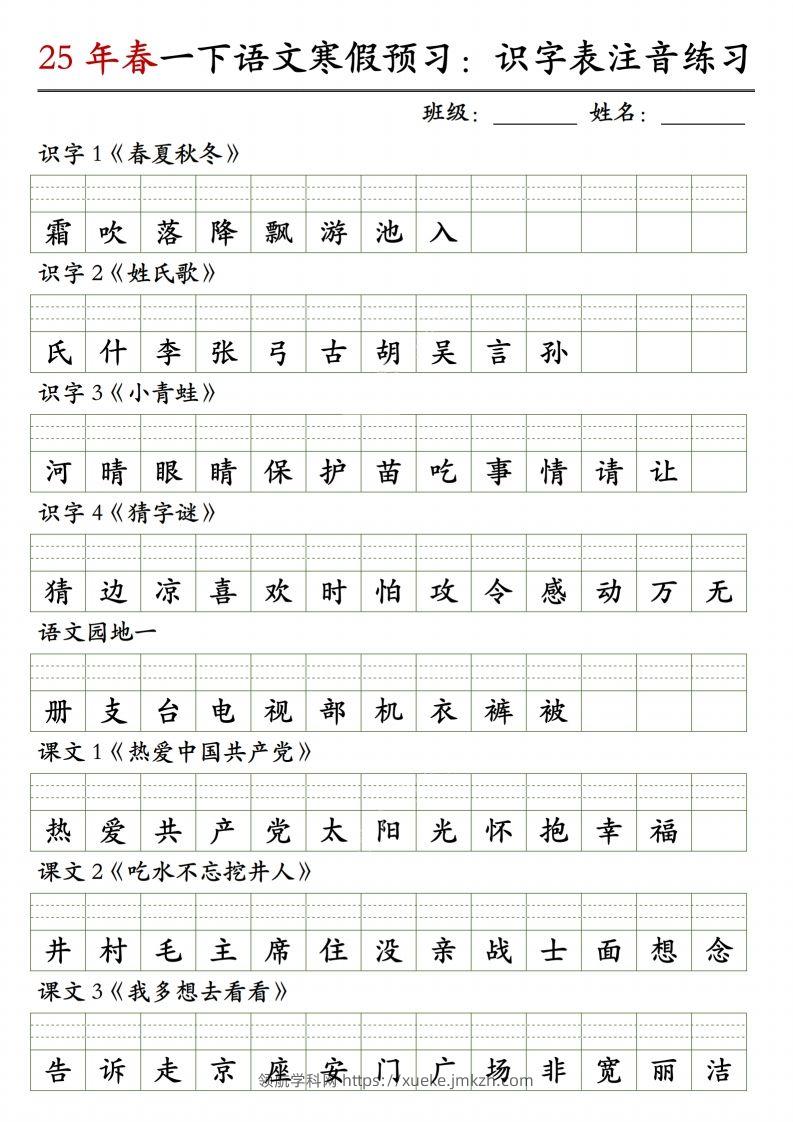 25 年春一下语文寒假预习：识字表注音练习
班级：_______ 姓名：_______
识字 1《春夏秋冬》
霜 吹 落 降 飘 游 池 入
识字 2《姓氏歌》
氏 什 李 张 弓 古 胡 吴 言 孙
识字 3《小青蛙》
河 晴 眼 睛 保 护 苗 吃 事 情 请 让
识字 4《猜字谜》
猜 边 凉 喜 欢 时 怕 攻 令 感 动 万 无
语文园地一
册 支 台 电 视 部 机 衣 裤 被
课文 1《热爱中国共产党》
热 爱 共 产 党 太 阳 光 怀 抱 幸 福
课文 2《吃水不忘挖井人》
井 村 毛 主 席 住 没 亲 战 士 面 想 念
课文 3《我多想去看看》
告 诉 走 京 座 安 门 广 场 非 宽 丽 洁
领航学科网 https://xueke.jmkzh.com